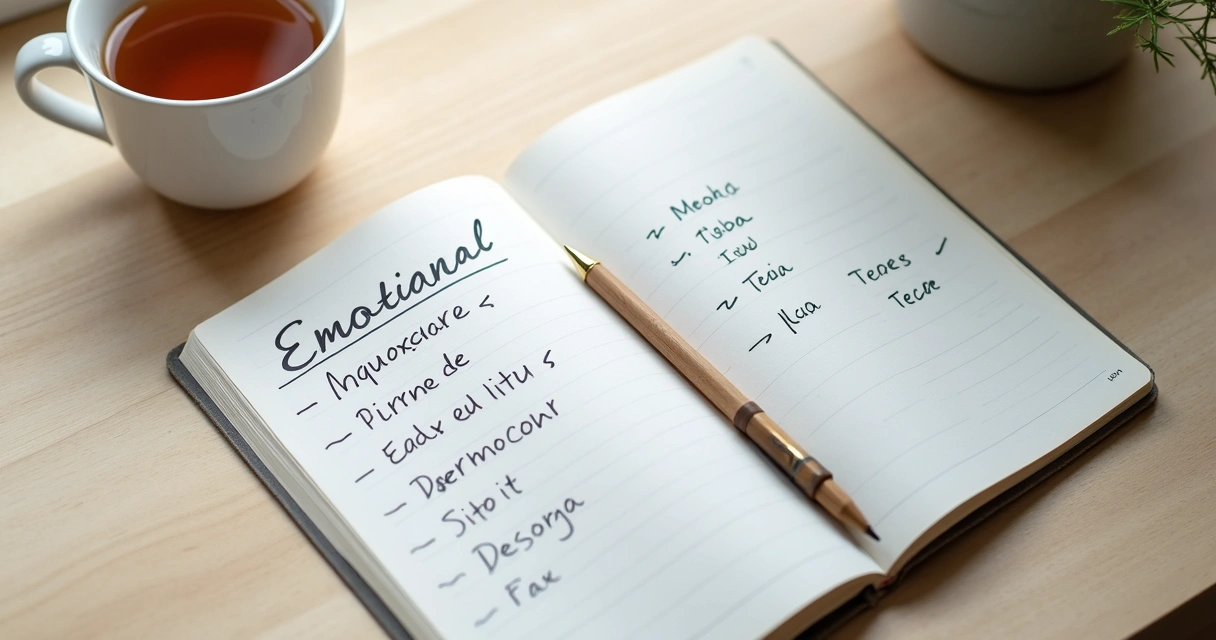 Emotianal
– Mquoxcare <
~ Pirrne de
– Eadx ed litu s
– Dsermocohr
~ Sito it
~ Desorja
~ Fax
~ Meoha
Tisba
Iud
~ Teia
Teces ✓
Tecre